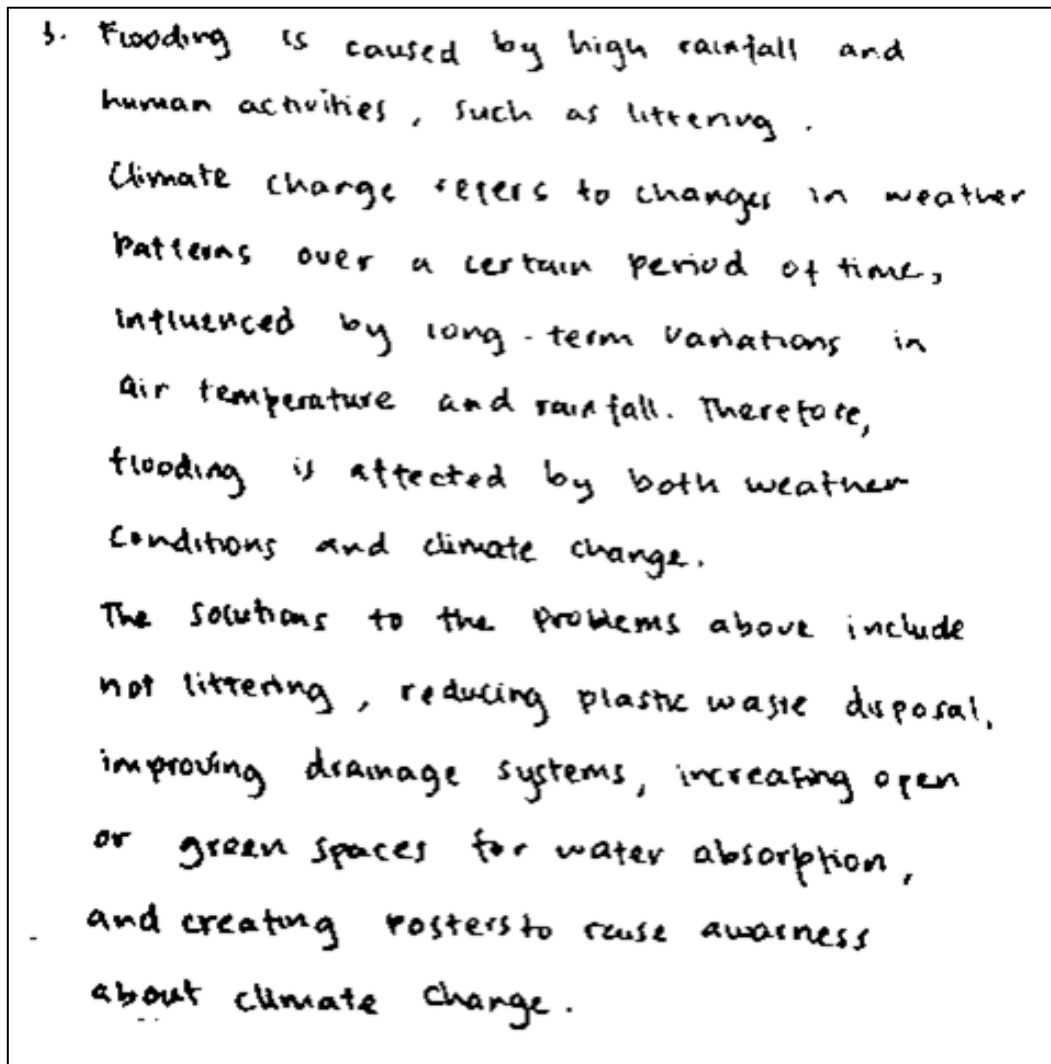 3. Flooding is caused by high rainfall and
human activities, such as littering.
Climate change refers to changes in weather
patterns over a certain period of time,
influenced by long-term variations in
air temperature and rainfall. Therefore,
flooding is affected by both weather
conditions and climate change.
The solutions to the problems above include
not littering, reducing plastic waste disposal,
improving drainage systems, increasing open
or green spaces for water absorption,
and creating posters to raise awarness
about climate change.